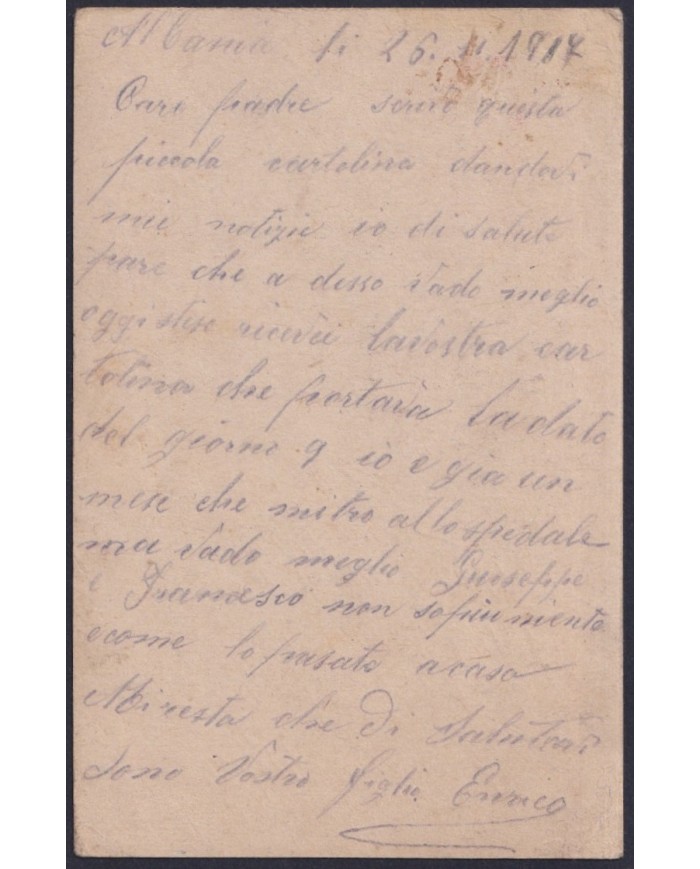 Albania li 26. 11. 1917
Caro padre scrivo questa
piccola cartolina dandovi
mie notizie io di salute
pare che a desso vado meglio
oggi stese ricevei lavostra car
tolina che portava la dato
del giorno 9 io e gia un
mese che mitro allospedale
ma vado meglio Giuseppe
e Francesco non so piu niente
e come lo pasato a casa
Mi resta che di Salutarvi
sono Vostro figlio Enrico